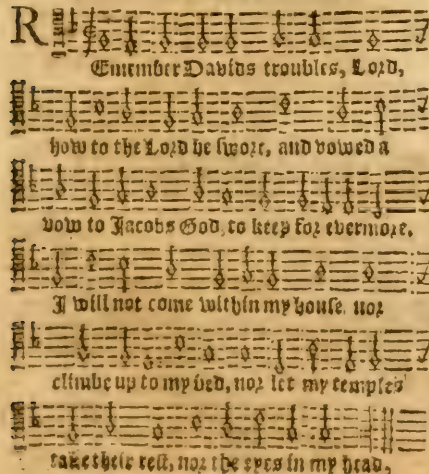 REmember Davids troubles, Lord,
how to the Lord he swore, and vowed a
vow to Jacobs God, to keep for evermore.
I will not come within my house. nor
climbe up to my bed, nor let my temples
take their rest, nor the eyes in my head,